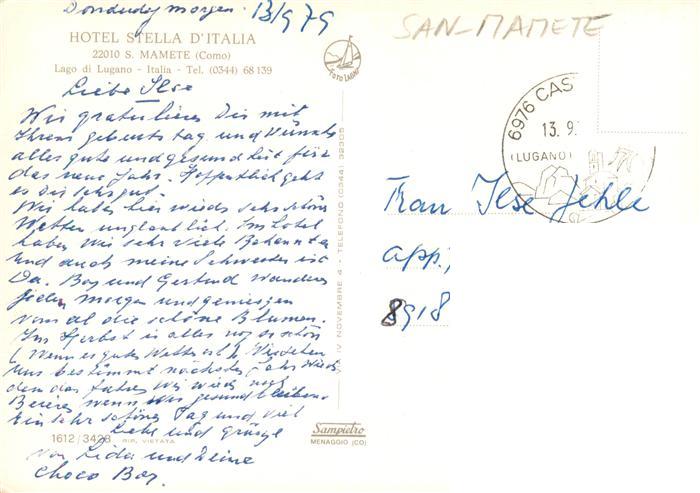 Donderdag morgen 13/9 79
HOTEL STELLA D'ITALIA
22010 S. MAMETE (Como)
Lago di Lugano - Italia - Tel. (0344) 68 139
Liebe Ilse
Wir gratulieren Dir mit
Ihrem geburtstag und
alles gute und gesundheit für
das neue Jahr. Hoffentlich geht
es Dir sehr gut.
Wir haben hier wieder sehr schönes
Wetter unglaublich. Im Hotel
haben wir sehr viele Bekannten
und auch meine Schwester ist
Da. Boy und Gertrud wandern
jeden morgen und geniessen
von al die schöne Blumen.
Im Herbst is alles noch so schön
(Wenn es gutes Wetter ist)
uns bestimmt nächstes Jahr wieder
den das fahren wir wieder nach
wenn wir gesund bleiben.
Ein sehr schönes Tag und viel
Liebe und grüsse
von Lida und Deine
Choco Boy.
1612/3428 RIP. VIETATA
FOTO LAGHI
VIA IV NOVEMBRE 4 - TELEFONO (0344) 32305
Sampietro
MENAGGIO (CO)
SAN-MAMETE
6976 CAS
13. 9.
(LUGANO)
Frau Ilse Jehle
App.,
8918